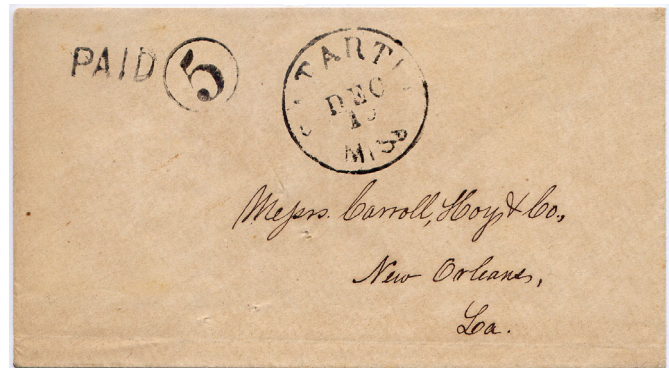 PAID 5
SATARTIA
DEC
MISS
Messrs. Carroll, Hoy & Co.,
New Orleans,
La.